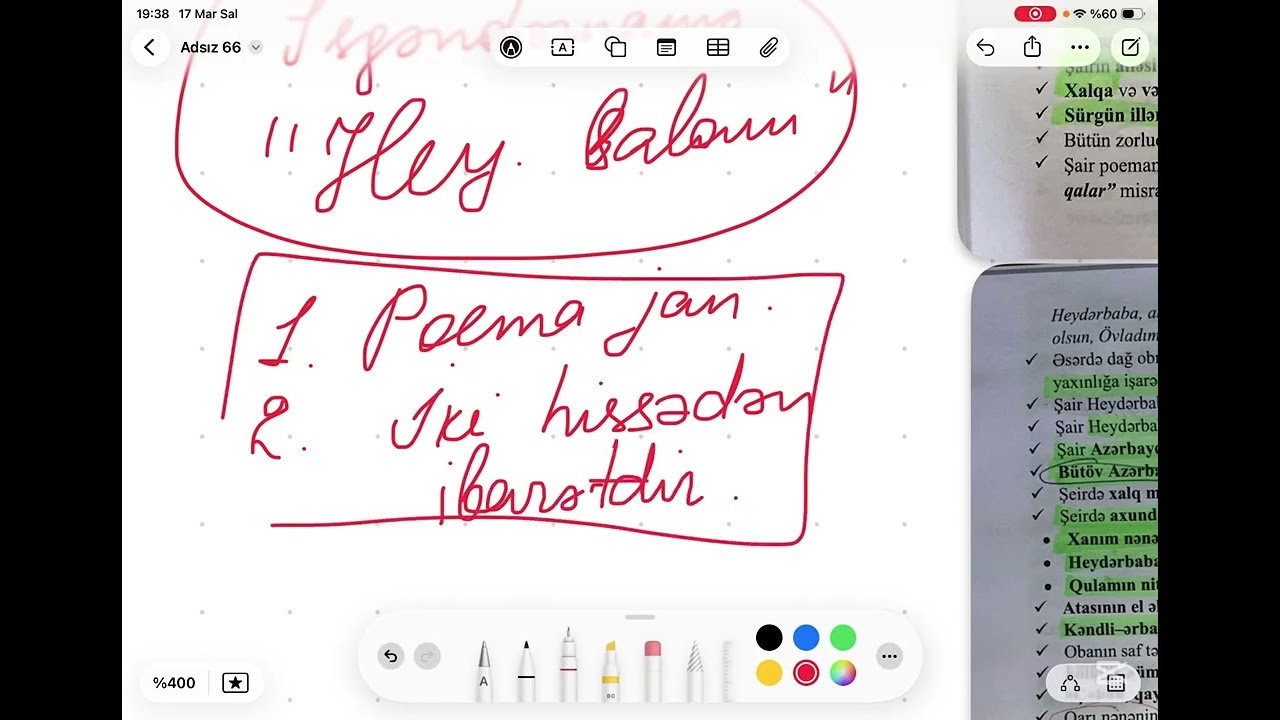 19:38 17 Mar Sal
%60
Adsız 66
A
"Hey. Balam"
1. Poema jan.
2. İki hissədən
ibarətdir.
Xalqa və və
Sürgün illər
Bütün zorluq
Şair poeman
qalar” misra
Heydərbaba, a
olsun, Övladım
Əsərdə dağ ob
yaxınlığa işarə
Şair Heydərba
Şair Heydərba
Şair Azərbayc
Bütöv Azərba
Şeirdə xalq m
Şeirdə axund
Xanım nənə
Heydərbaba
Qulamın nit
Atasının el ə
Kəndli–ərba
Obanın saf tə
Qarı nənənin
A
80
%400